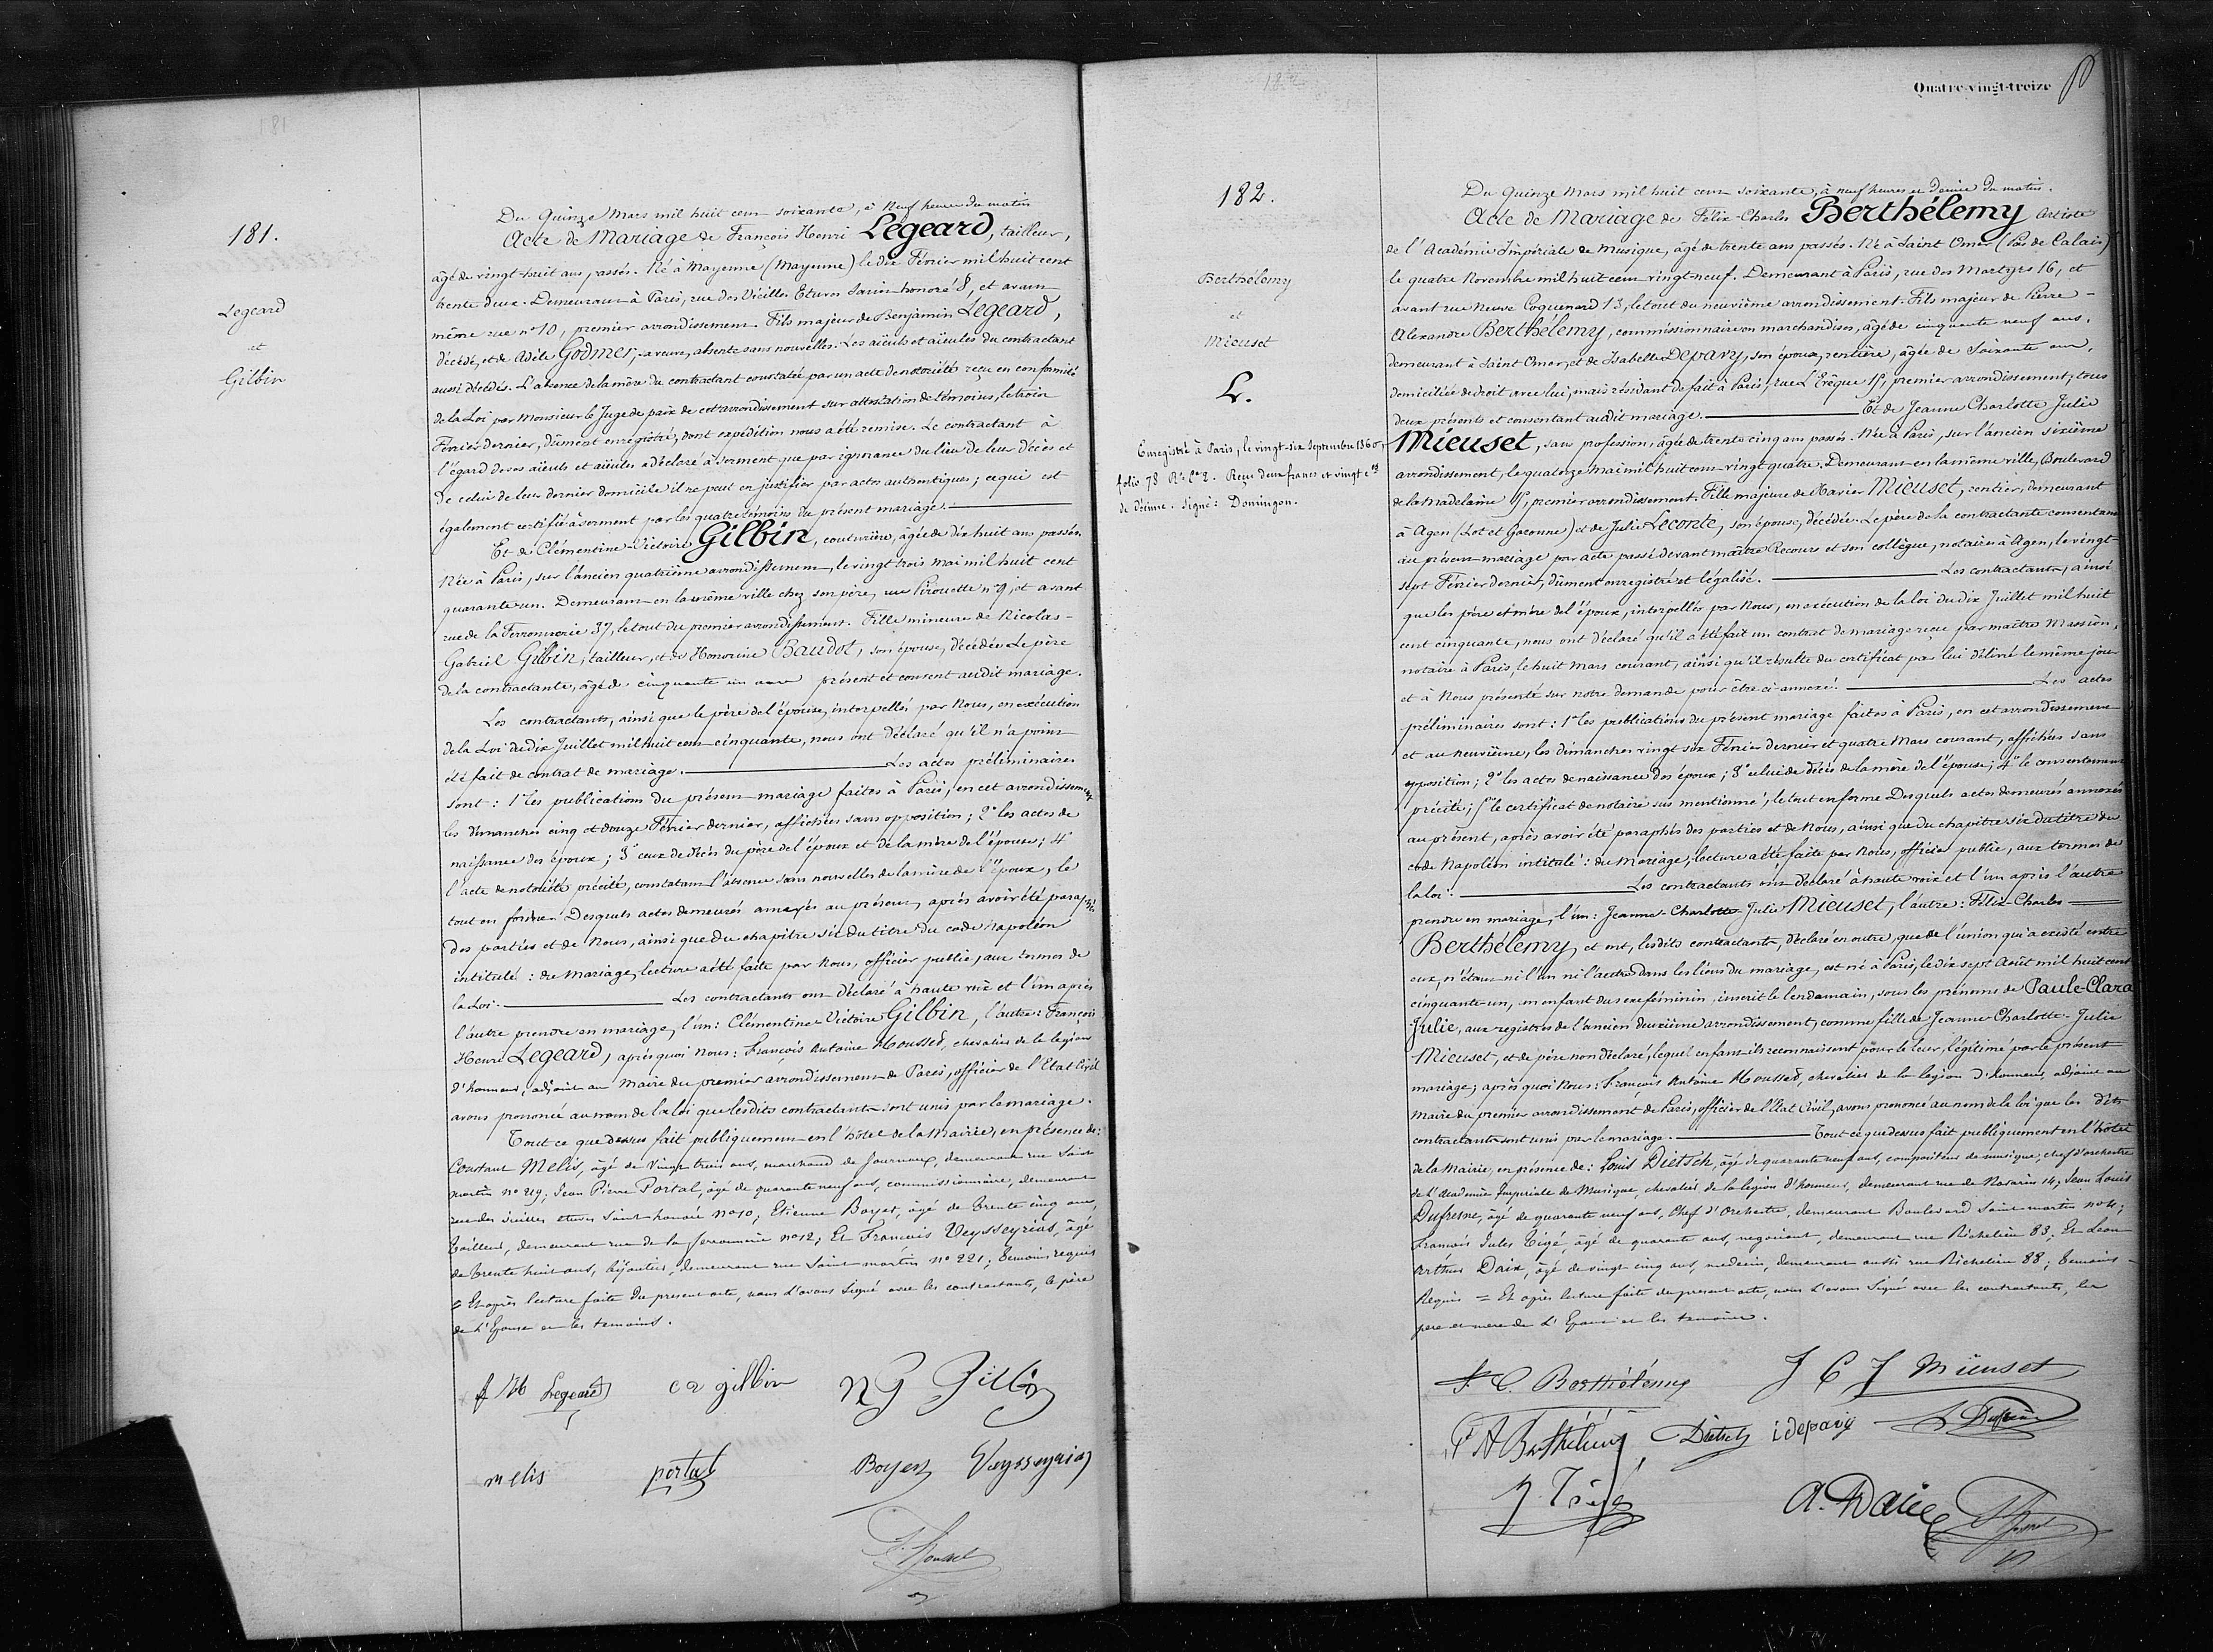 181
181.
Legeard
et
Gilbin
Du Quinze Mars mil huit cent soixante, à Neuf heures du matin
Acte de Mariage de François Henri Legeard, tailleur,
âgé de vingt-huit ans passés. Né à Mayenne (Mayenne) le dix Février mil huit cent
trente deux. Demeurant à Paris, rue des Vieilles Etuves Saint-honoré 8, et avant
même rue n° 10, premier arrondissement. Fils majeur de Benjamin Legeard,
décédé, et de Adèle Godmer, sa veuve, absente sans nouvelles. Les aïeuls et aïeules du contractant
aussi décédés. L'absence de la mère du contractant constatée par un acte de notoriété reçu en conformité
de la Loi par Monsieur le Juge de paix de cet arrondissement sur attestation de témoins, le trois
Février dernier, dûment enregistré, dont expédition nous a été remise. Le contractant à
l'égard de ses aïeuls et aïeules a déclaré à serment que par ignorance du lieu de leur décès et
de celui de leur dernier domicile il ne peut en justifier par actes authentiques; ce qui est
également certifié à serment par les quatre témoins du présent mariage.
Et de Clémentine-Victoire Gilbin, couturière, âgée de dix huit ans passés.
Née à Paris, sur l'ancien quatrième arrondissement, le vingt trois Mai mil huit cent
quarante un. Demeurant en la même ville chez son père, rue Pirouette n° 9, et avant
rue de la Ferronnerie 37, le tout du premier arrondissement. Fille mineure de Nicolas-
Gabriel Gilbin, tailleur, et de Honorine Baudot, son épouse, décédée. Le père
de la contractante, âgé de cinquante un ans présent et consent audit mariage.
Les contractants, ainsi que le père de l'épouse, interpellés par Nous, en exécution
de la Loi du dix Juillet mil huit cent cinquante, nous ont déclaré qu'il n'a point
été fait de contrat de mariage. Les actes préliminaires
sont: 1° les publications du présent mariage faites à Paris, en cet arrondissement
les dimanches cinq et douze Février dernier, affichées sans opposition; 2° les actes de
naissance des époux; 3° ceux de décès du père de l'époux et de la mère de l'épouse; 4°
l'acte de notoriété précité, constatant l'absence sans nouvelles de la mère de l'époux, le
tout en forme. Desquels actes demeurés annexés au présent, après avoir été paraphés
des parties et de Nous, ainsi que du chapitre six du titre du code Napoléon
intitulé: du Mariage, lecture a été faite par Nous, officier public, aux termes de
la Loi. Les contractants ont déclaré à haute voix et l'un après
l'autre prendre en mariage, l'un: Clémentine-Victoire Gilbin, l'autre: François
Henri Legeard, après quoi Nous: François Antoine Moussed, chevalier de la légion
d'honneur, adjoint au Maire du premier arrondissement de Paris, officier de l'Etat Civil
avons prononcé au nom de la loi que les dits contractants sont unis par le mariage.
Tout ce que dessus fait publiquement en l'hôtel de la Mairie, en présence de:
Constant Melis, âgé de vingt trois ans, marchand de journaux, demeurant rue Saint
Martin n° 219; Jean Pierre Portal, âgé de quarante neuf ans, commissionnaire, demeurant
rue des vieilles etuves Saint honoré n° 10; Etienne Boyer, âgé de trente cinq ans,
tailleur, demeurant rue de la ferronnerie n° 12; Et François Veysseyrias, âgé
de trente huit ans, bijoutier, demeurant rue Saint martin n° 221; témoins requis
= Et après lecture faite du présent acte, nous l'avons signé avec les contractants, le père
de L'Epouse et les temoins.
f h Legeard
c v gilbin
N G Gilbin
melis
portal
Boyer
Veysseyrias
182
Quatre-vingt-treize
182.
Berthélemy
et
Mieuset
L.
Enregistré à Paris, le vingt-six Septembre 1860,
folio 78 R° Ce 2. Reçu deux francs et vingt ces
de décime. Signé: Domingon.
Du Quinze Mars mil huit cent soixante, à neuf heures et demie du matin.
Acte de Mariage de Félix-Charles Berthélemy artiste
de l'Académie Impériale de Musique, âgé de trente ans passés. Né à Saint Omer (Pas de Calais)
le quatre Novembre mil huit cent vingt-neuf. Demeurant à Paris, rue des Martyrs 16, et
avant rue Neuve Coquenard 13, le tout du neuvième arrondissement. Fils majeur de Pierre-
Alexandre Berthélemy, commissionnaire en marchandises, âgé de cinquante neuf ans,
demeurant à Saint Omer, et de Isabelle Depavy, son épouse, rentière, âgée de Soixante ans,
domiciliée de droit avec lui, mais résidant de fait à Paris, rue L'Evêque 15, premier arrondissement; tous
deux présents et consentant audit mariage. Et de Jeanne Charlotte Julie
Mieuset, sans profession, âgée de trente cinq ans passés. Née à Paris, sur l'ancien sixième
arrondissement, le quatorze Mai mil huit cent vingt quatre. Demeurant en la même ville, Boulevard
de la Madelaine 15, premier arrondissement. Fille majeure de Xavier Mieuset, rentier, demeurant
à Agen (Lot et Garonne) et de Julie Leconte, son épouse, décédée. Le père de la contractante consentant
au présent mariage par acte passé devant maître Recours et son collègue, notaires à Agen, le vingt-
sept Février dernier, dûment enregistré et légalisé. Les contractants, ainsi
que les père et mère de l'époux, interpellés par Nous, en exécution de la loi du dix Juillet mil huit
cent cinquante, nous ont déclaré qu'il a été fait un contrat de mariage reçu par maître Massion,
notaire à Paris, le huit Mars courant, ainsi qu'il résulte du certificat par lui délivré le même jour
et à Nous présenté sur notre demande pour être ci-annexé. Les actes
préliminaires sont: 1° les publications du présent mariage faites à Paris, en cet arrondissement
et au neuvième, les dimanches vingt six Février dernier et quatre Mars courant, affichées sans
opposition; 2° les actes de naissance des époux; 3° celui de décès de la mère de l'épouse; 4° le consentement
précité; 5° le certificat de notaire sus mentionné, le tout en forme. Desquels actes demeurés annexés
au présent, après avoir été paraphés des parties et de Nous, ainsi que du chapitre six du titre du
code Napoléon intitulé: du Mariage, lecture a été faite par Nous, officier public, aux termes de
la loi. Les contractants ont déclaré à haute voix et l'un après l'autre
prendre en mariage, l'un: Jeanne-Charlotte-Julie Mieuset, l'autre: Félix-Charles
Berthélemy, et ont, les dits contractants, déclaré en outre, que de l'union qui a existé entre
eux, n'étant ni l'un ni l'autre dans les liens du mariage, est né à Paris, le dix sept Août mil huit cent
cinquante-un, un enfant du sexe féminin, inscrit le lendemain, sous les prénoms de Paule-Clara
Julie, aux registres de l'ancien deuxième arrondissement, comme fille de Jeanne-Charlotte-Julie
Mieuset, et de père non déclaré, lequel enfant ils reconnaissent pour le leur, légitimé par le présent
mariage; après quoi Nous: François Antoine Moussed, chevalier de la légion d'honneur, adjoint au
Maire du premier arrondissement de Paris, officier de l'Etat Civil, avons prononcé au nom de la loi que les dits
contractants sont unis par le mariage. Tout ce que dessus fait publiquement en l'hôtel
de la Mairie, en présence de: Louis Dietsch, âgé de quarante neuf ans, compositeur de musique, chef d'orchestre
de l'Academie Imperiale de Musique, chevalier de la legion d'honneur, demeurant rue de Navarin 14; Jean Louis
Dufresne, âgé de quarante neuf ans, Chef d'Orchestre, demeurant Boulevard Saint-martin n° 4;
François Jules Tigé, âgé de quarante ans, negociant, demeurant rue Richelieu 83; Et Leon
Arthur Daix, âgé de vingt cinq ans, medecin, demeurant aussi rue Richelieu 88; témoins
Requis = Et après lecture faite du present acte, nous l'avons Signé avec les contractants, les
pere et mere de L'Epoux et les temoins.
F. C. Berthélemy
J C J Mieuset
P A Berthélemy
Dietsch
i depavy
L Dufresne